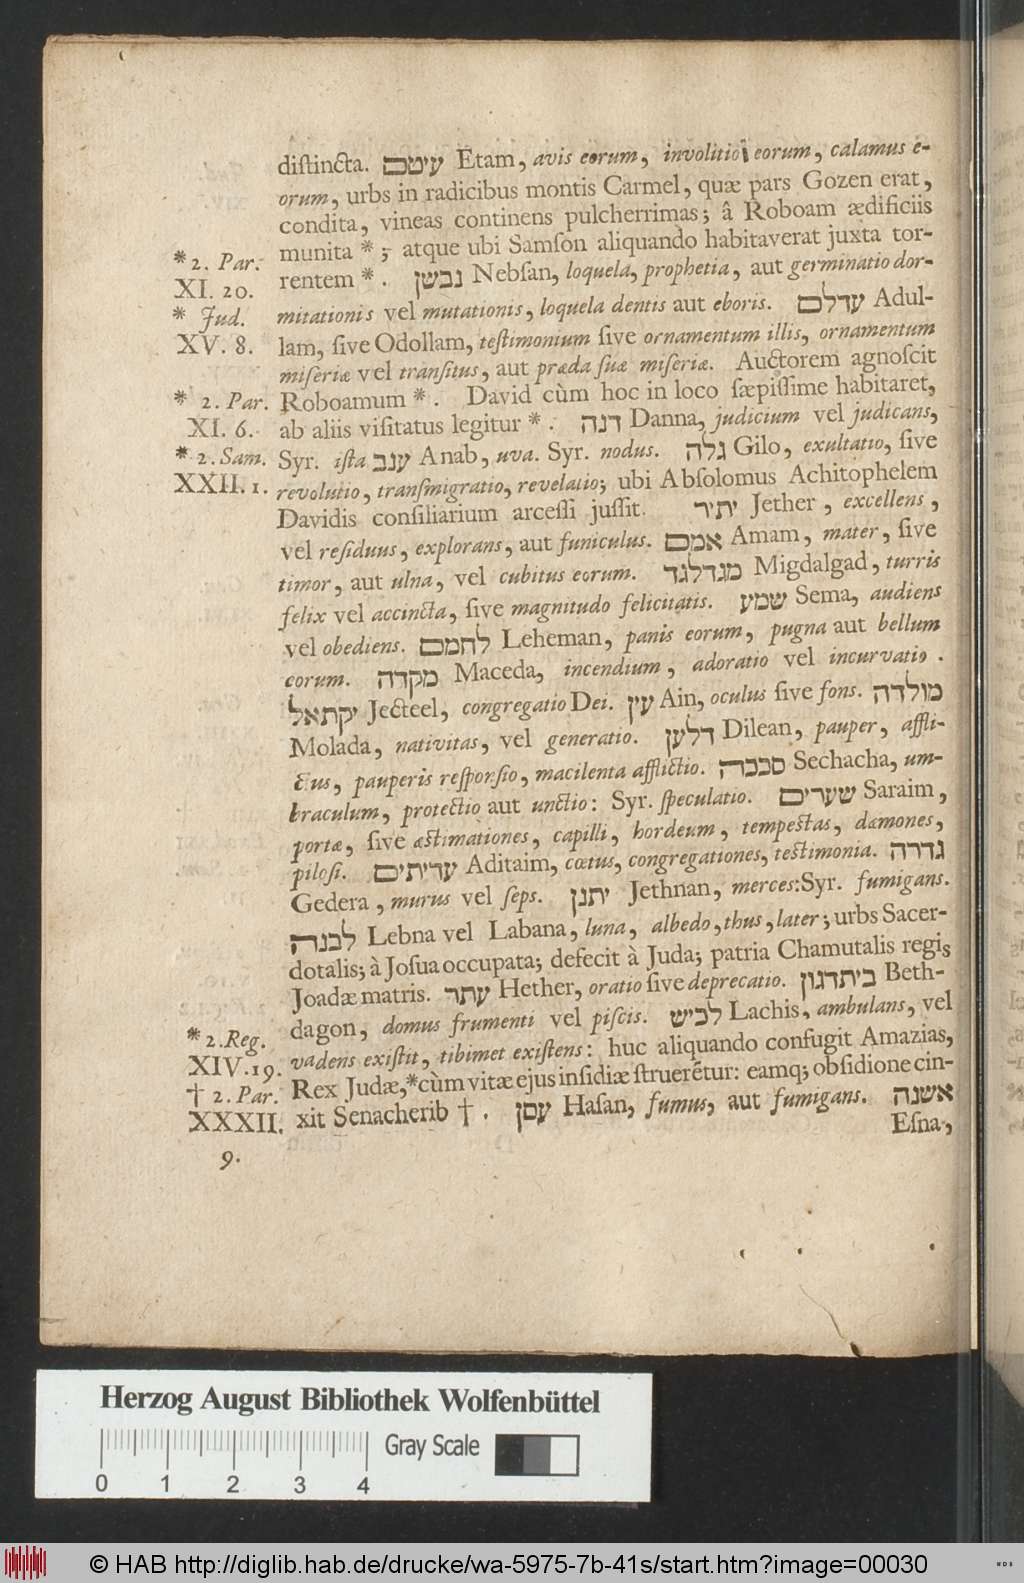 diſtincta. עיטם Etam, avis eorum, involitio eorum, calamus e-
orum, urbs in radicibus montis Carmel, quæ pars Gozen erat,
condita, vineas continens pulcherrimas; â Roboam ædificiis
munita *; atque ubi Samſon aliquando habitaverat juxta tor-
rentem *. נבשן Nebſan, loquela, prophetia, aut germinatio dor-
mitationis vel mutationis, loquela dentis aut eboris. עדלם Adul-
lam, ſive Odollam, teſtimonium ſive ornamentum illis, ornamentum
miſeriæ vel tranſitus, aut præda ſuæ miſeriæ. Auctorem agnoſcit
Roboamum *. David cùm hoc in loco ſæpiſſime habitaret,
ab aliis viſitatus legitur *. דנה Danna, judicium vel judicans,
Syr. iſta ענב Anab, uva. Syr. nodus. גלה Gilo, exultatio, ſive
revolutio, tranſmigratio, revelatio; ubi Abſolomus Achitophelem
Davidis conſiliarium arceſſi juſſit. יתיר Jether, excellens,
vel reſiduus, explorans, aut funiculus. אמם Amam, mater, ſive
timor, aut ulna, vel cubitus eorum. מגדלגד Migdalgad, turris
felix vel accincta, ſive magnitudo felicitatis. שמע Sema, audiens
vel obediens. לחמם Leheman, panis eorum, pugna aut bellum
eorum. מקדה Maceda, incendium, adoratio vel incurvatio.
יקתאל Jecteel, congregatio Dei. עין Ain, oculus ſive fons. מולדה
Molada, nativitas, vel generatio. דלען Dilean, pauper, affli-
ctus, pauperis reſponſio, macilenta afflictio. סככה Sechacha, um-
braculum, protectio aut unctio: Syr. ſpeculatio. שערים Saraim,
portæ, ſive æſtimationes, capilli, hordeum, tempeſtas, dæmones,
piloſi. עדיתים Aditaim, cœtus, congregationes, teſtimonia. גדרה
Gedera, murus vel ſeps. יתנן Jethnan, merces: Syr. fumigans.
לבנה Lebna vel Labana, luna, albedo, thus, later; urbs Sacer-
dotalis; à Joſua occupata; defecit à Juda; patria Chamutalis regis
Joadæ matris. עתר Hether, oratio ſive deprecatio. ביתדגון Beth-
dagon, domus frumenti vel piſcis. לכיש Lachis, ambulans, vel
vadens exiſtit, tibimet exiſtens: huc aliquando confugit Amazias,
Rex Judæ,* cùm vitæ ejus inſidiæ ſtruerẽtur: eamq; obſidione cin-
xit Senacherib †. עסן Haſan, fumus, aut fumigans. אשנה
Eſna,
* 2. Par.
XI. 20.
* Jud.
XV. 8.
* 2. Par.
XI. 6.
* 2. Sam.
XXII. 1.
* 2. Reg.
XIV. 19.
† 2. Par.
XXXII.
9.
Herzog August Bibliothek Wolfenbüttel
Gray Scale
0 1 2 3 4
© HAB http://diglib.hab.de/drucke/wa-5975-7b-41s/start.htm?image=00030